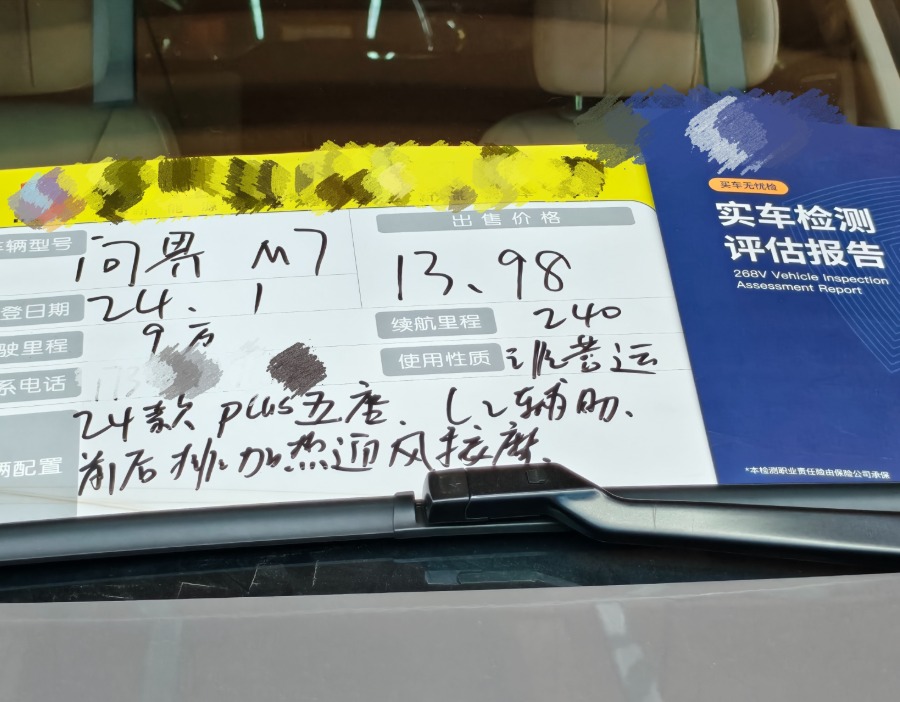 出售价格
车辆型号 问界 M7
13.98
登日期 24.1
续航里程 240
驶里程 9万
使用性质 非营运
系电话
24款 plus五座、L2辅助、
辆配置 前后排加热通风按摩、
买车无忧检
实车检测
评估报告
268V Vehicle Inspection
Assessment Report
*本检测职业责任险由保险公司承保